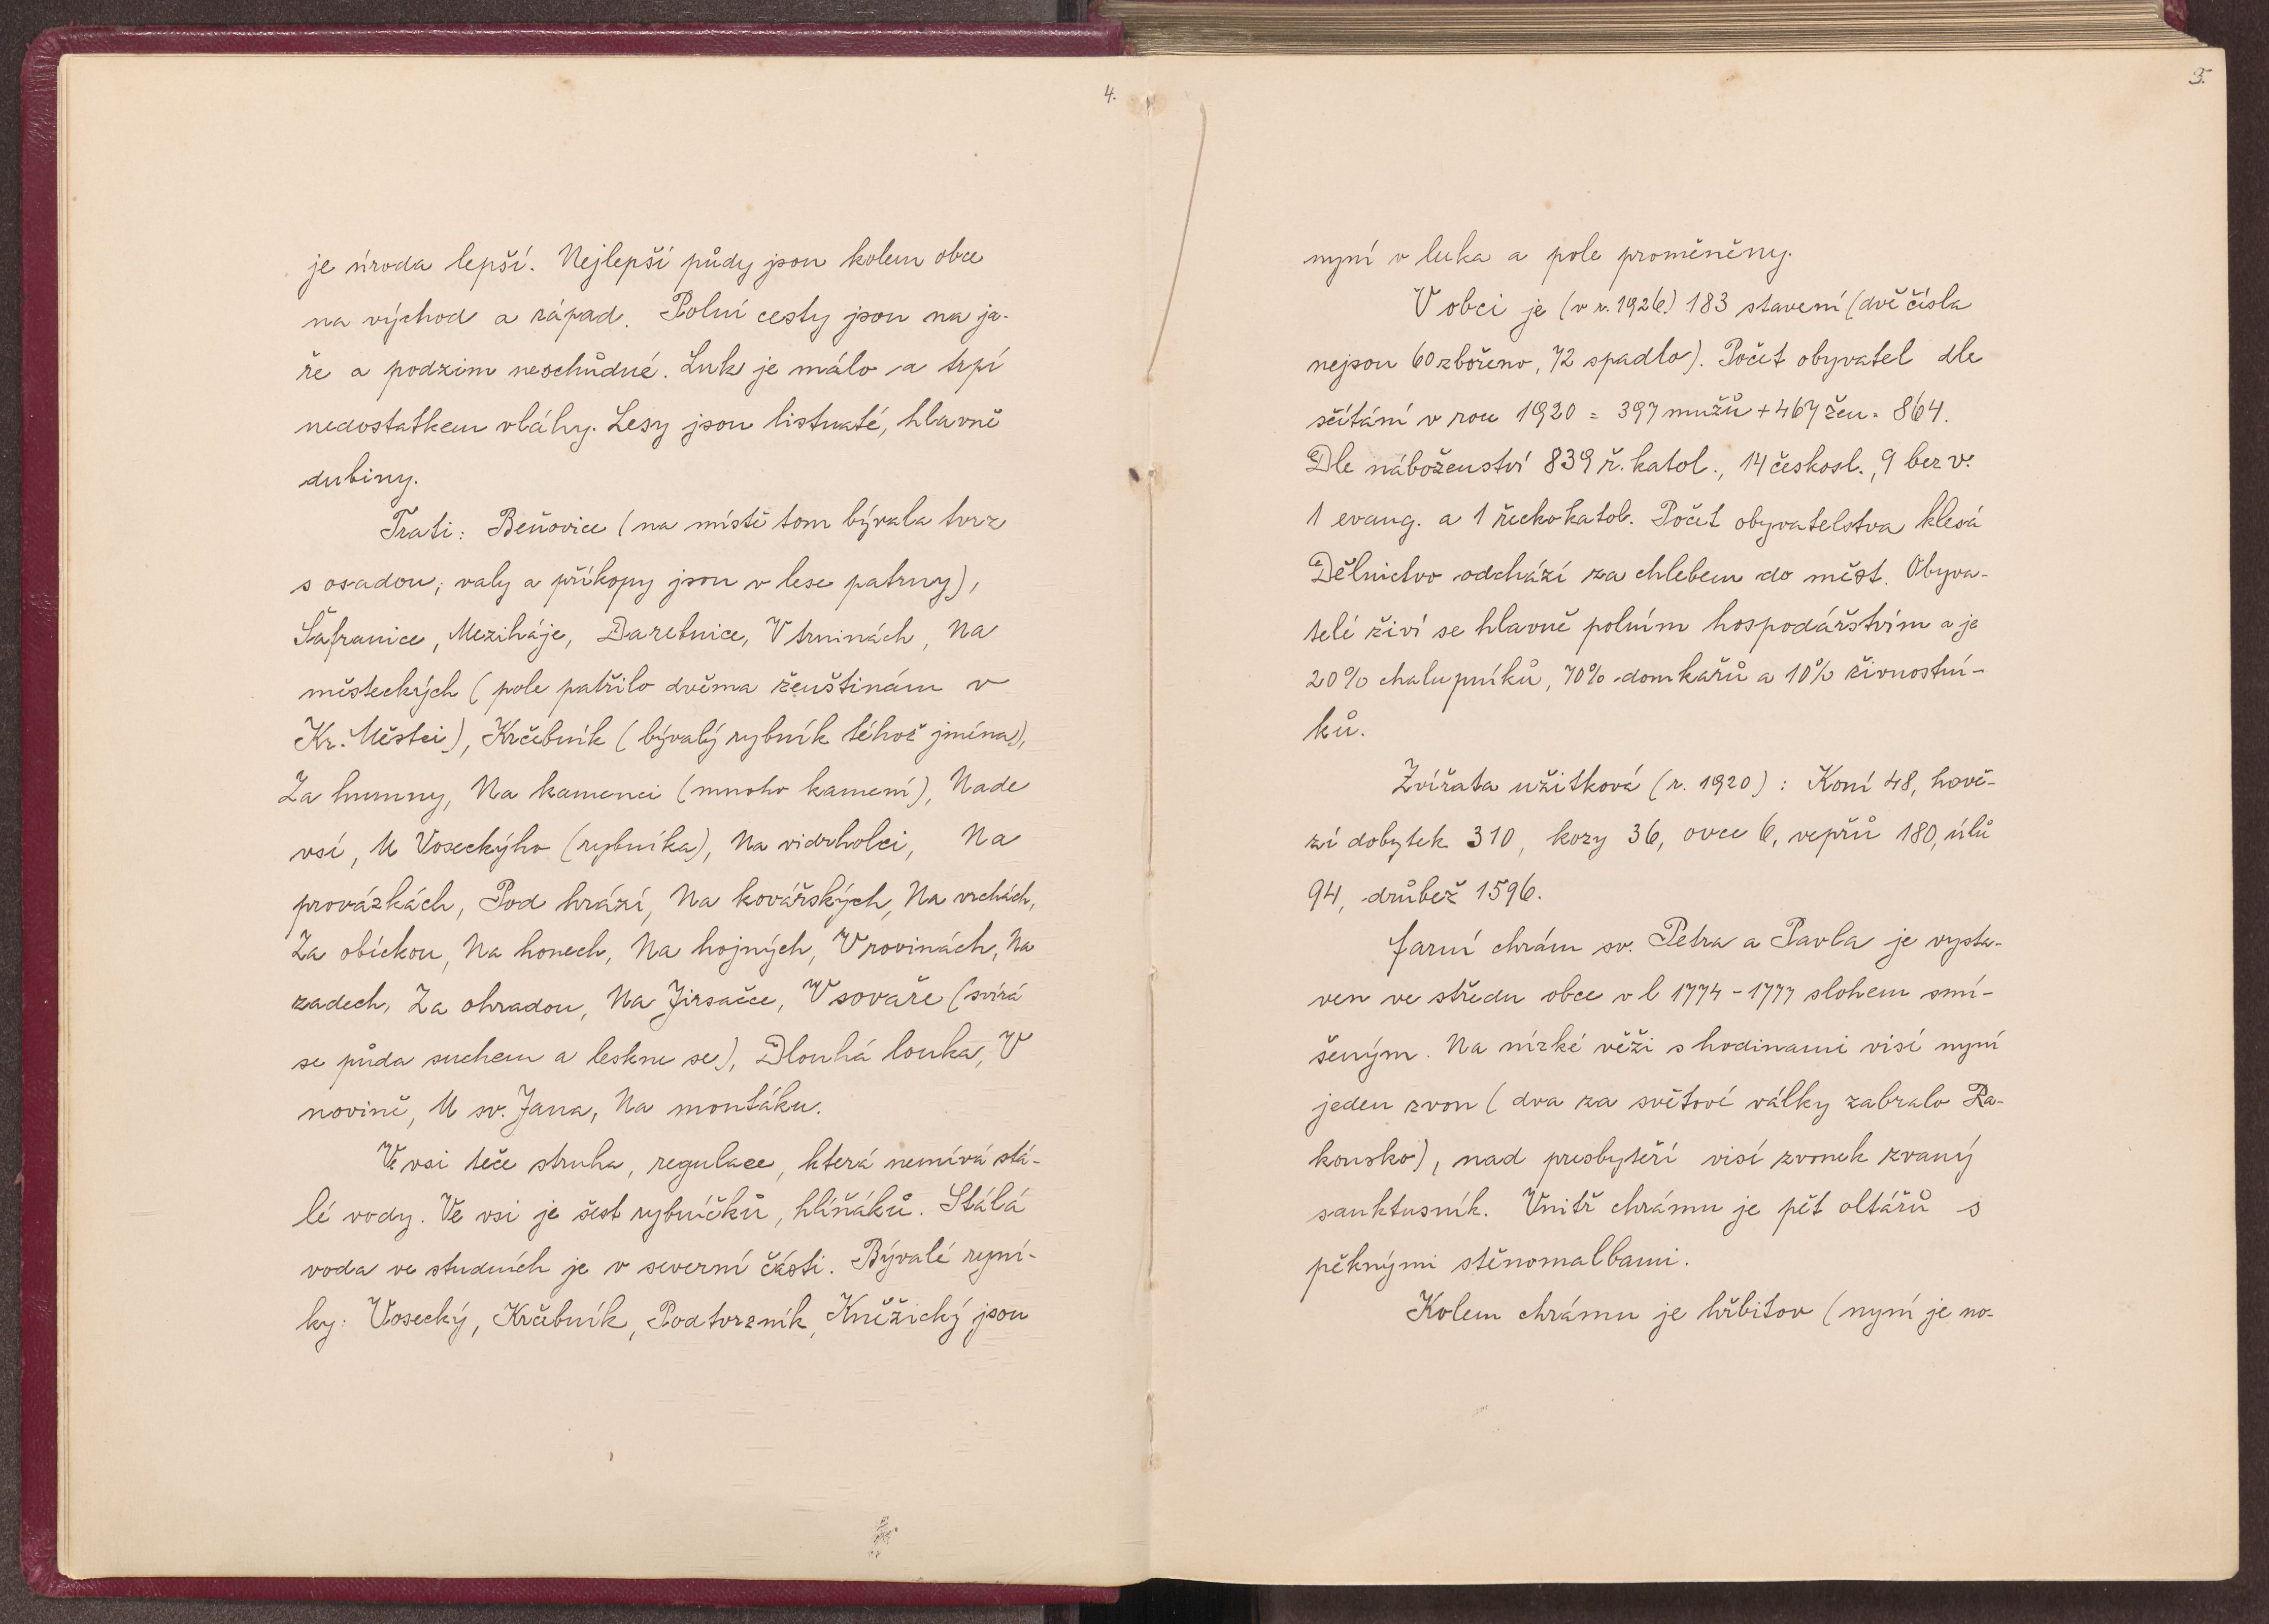 4.
je úroda lepší. Nejlepší půdy jsou kolem obce
na východ a západ. Polní cesty jsou na ja-
ře a podzim neschůdné. Luk je málo a trpí
nedostatkem vláhy. Lesy jsou listnaté, hlavně
dubiny.
Trati: Beňovice (na místě tom bývala tvrz
s osadou; valy a příkopy jsou v lese patrny),
Šafranice, Meziháje, Daretnice, V trninách, Na
městeckých (pole patřilo dvěma ženštinám v
Kr. Městci), Krčebník (bývalý rybník téhož jména),
Za humny, Na kamenci (mnoho kamení), Nade
vsí, U Voseckýho (rybníka), Na vidrholci, Na
provázkách, Pod hrází, Na kovářských, Na vrchách,
Za obíckou, Na honech, Na hojných, V rovinách, Na
zadech, Za ohradou, Na Jirsačce, V sovaře (svírá
se půda suchem a leskne se), Dlouhá louka, V
novině, U sv. Jana, Na montáku.
Ve vsi teče struha, regulace, která nemívá stá-
lé vody. Ve vsi je šest rybníčků, hliňáků. Stálá
voda ve studních je v severní části. Bývalé ryní-
ky: Vosecký, Krčebník, Podtvrzník, Kněžický jsou
5.
nyní v luka a pole proměněny.
V obci je (v r. 1926) 183 stavení (dvě čísla
nejsou 60 zbořeno, 72 spadlo). Počet obyvatel dle
sčítání v rou 1920 = 397 mužů + 467 žen = 864.
Dle náboženství 839 ř. katol., 14 českosl., 9 bez v.
1 evang. a 1 řeckokatol. Počet obyvatelstva klesá
Dělnictvo odchází za chlebem do měst. Obyva-
telé živí se hlavně polním hospodářstvím a je
20% chalupníků, 70% domkařů a 10% živnostní-
ků.
Zvířata užitková (r. 1920): Koní 48, hově-
zí dobytek 310, kozy 36, ovce 6, vepřů 180, úlů
94, drůbež 1596.
farní chrám sv. Petra a Pavla je vysta-
ven ve středu obce v l 1774-1777 slohem smí-
šeným. Na nízké věži s hodinami visí nyní
jeden zvon (dva za světové války zabralo Ra-
kousko), nad presbyteří visí zvonek zvaný
sanktusník. Vnitř chrámu je pět oltářů s
pěknými stěnomalbami.
Kolem chrámu je hřbitov (nyní je no-